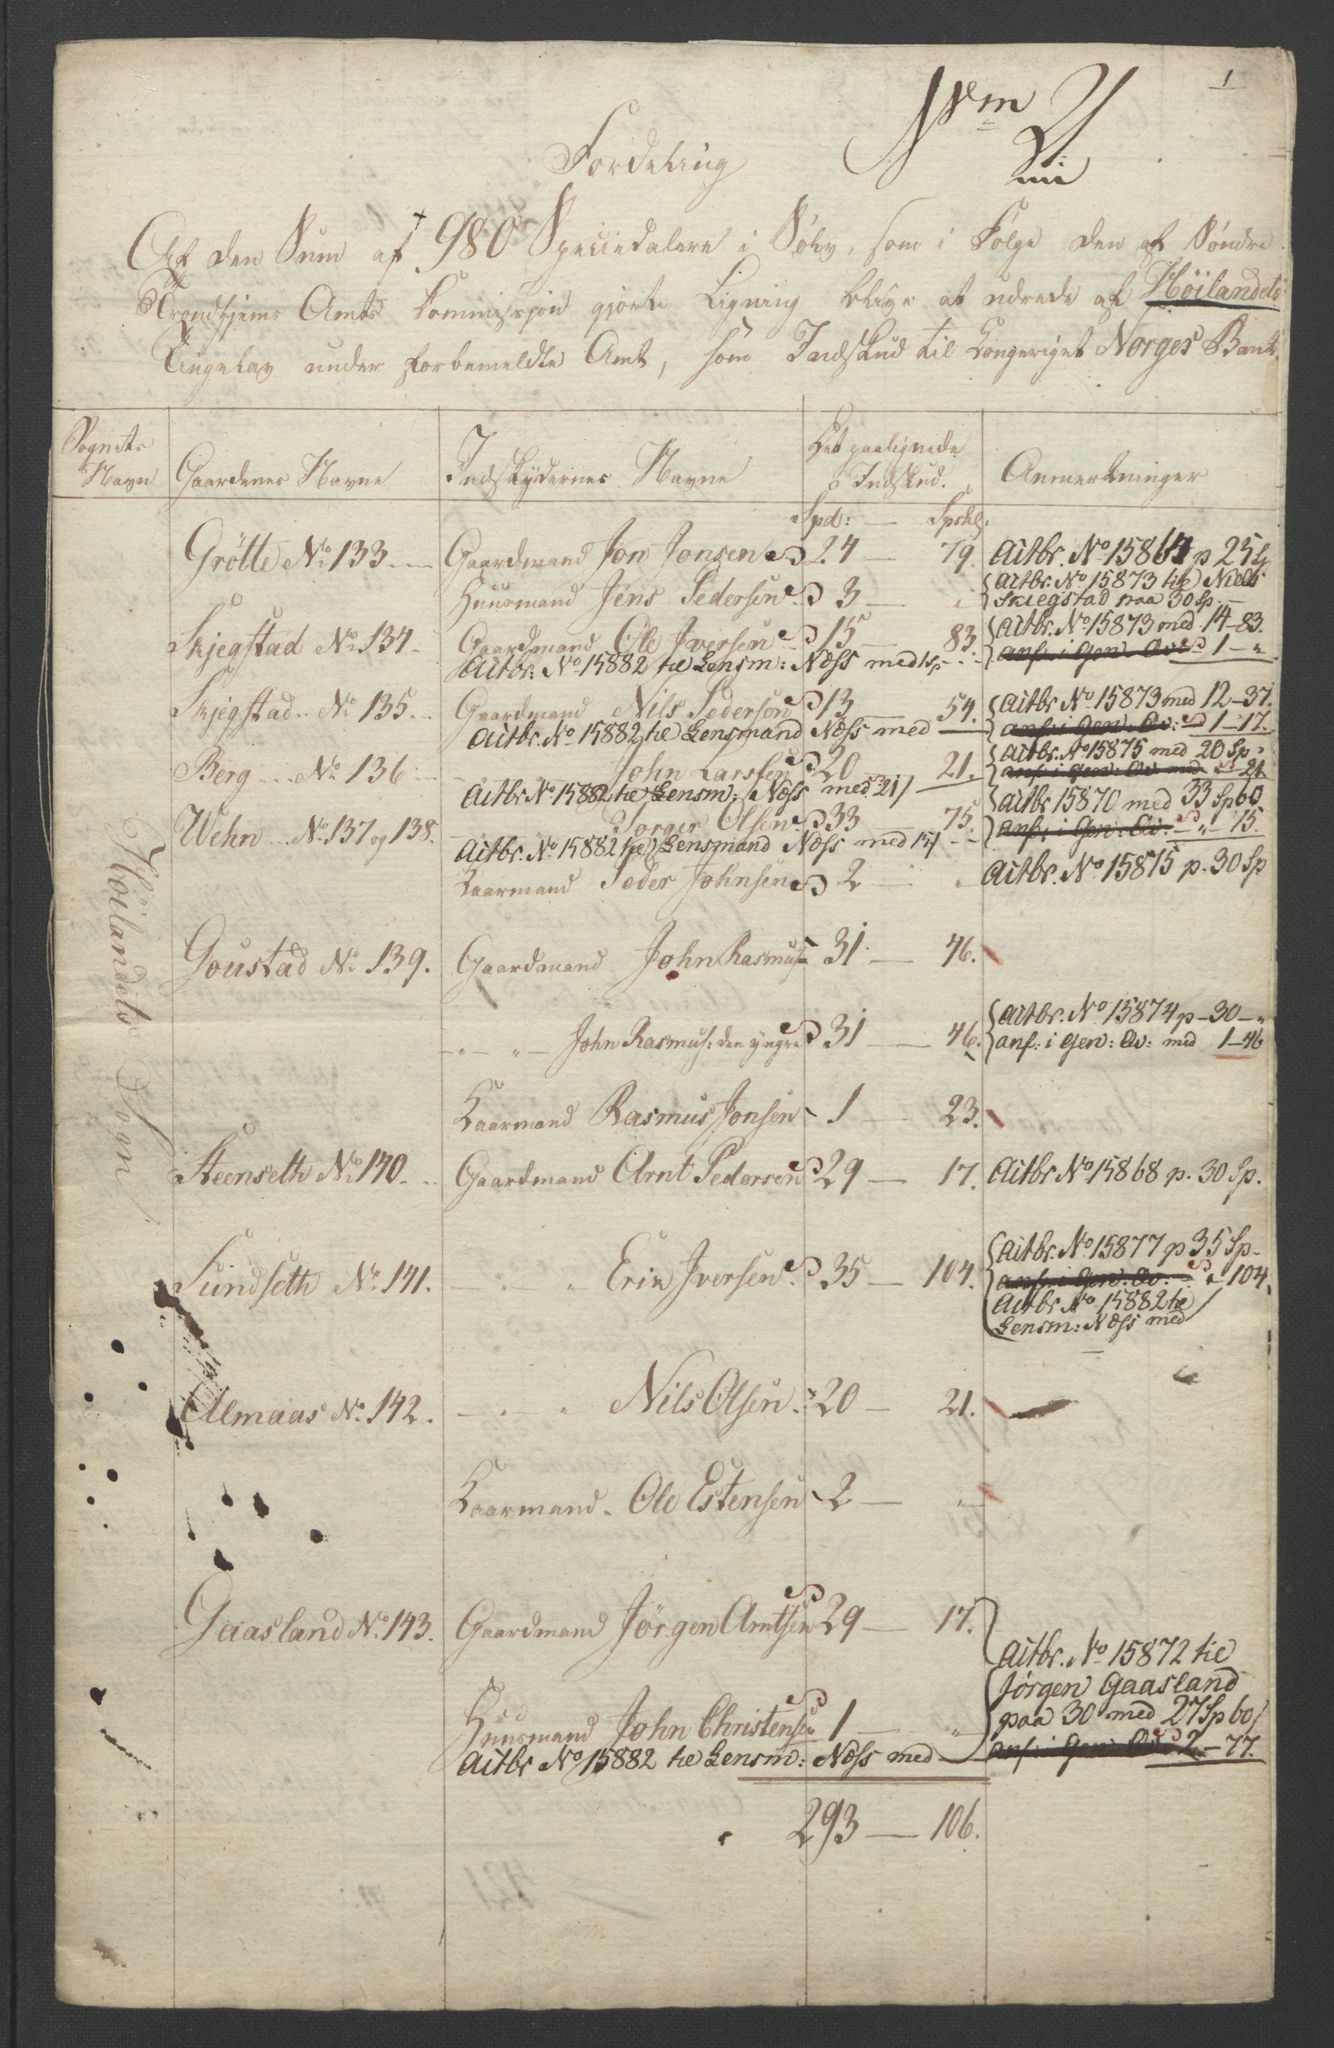 1
Fordeling
Af den Sum af 980 Speciedalere i Sølv, som i Følge den af Søndre
Trondhjems Amts Kommission gjorte Ligning bliver at udrede af Höilandets
Tingelav under forbemeldte Amt, som Indskud til Kongeriget Norges Bank.
Sognets Navn
Gaardenes Navne
Indskydernes Navne
Det paalignede Indskud.
Anmerkninger
Spd: — Spskl:
Höilandets Sogn
Grötte No 133. Gaardmand Jon Jonsen 24 — 79. Aitbr. No 15864 p 25 Sp
Huusmand Jens Pedersen 3 — " Aitbr. No 15873 tie Niels
Skiegstad paa 30 Sp.
Skjegstad No 134. Gaardmand Ole Iversen 15 — 83. Aitbr. No 15873 med 14-83.
Aitbr: No 15882 tie Lensm: Næss med 1 sp anf: i Gen: Qv: 1 — "
Skjegstad No 135. Gaardmand Nils Pedersen 13 — 54. Aitbr. No 15873 med 12-37.
Aitbr. No 15882 tie Lensmand Næss med anf: i Gen: Qv: 1-17.
Berg No 136 John Larssen 20 — 21. Aitbr. No 15875 med 20 Sp
Aitbr No 15882 tie Lensm: Næss med 21/ anf: i gen: Qv med 21
Wehn No 137 og 138. Torger Olsen 33 — 75. Aitbr 15870 med 33 Sp 60.
Aitbr. No 15882 tie Lensmand Næss med 15/ anf: i Gen: Qv: " 15.
Kaarmand Peder Johnsen 2 — " Aitbr. No 15875 p. 30 Sp
Goustad No 139. Gaardmand John Rasmus: 31 — 46.
— " — John Rasmus: den yngre 31 — 46. Aitbr. No 15874 p — 30 — "
anf: i Gen: Qv: med 1-46
Kaarmand Rasmus Jonsen 1 — 23.
Steenseth No 140. Gaardmand Arnt Pedersen 29 — 17. Aitbr No 15868 p. 30 Sp.
Sundseth No 141. Erik Iversen 35 — 104. Aitbr. No 15877 p 35 Sp
anf: i Gen: Qv: " 104.
Aitbr No 15882 tie
Lensm: Næss med
Almaas No 142. Nils Olsen 20 — 21.
Kaarmand Ole Estensen 2 — "
Gaasland No 143. Gaardmand Jörgen Arntsen 29 — 17.
Aitbr. No 15872 tie
Jörgen Gaasland
Huusmand John Christensen 1 — " paa 30 med 27 Sp 60/
Aitbr No 15882 tie Lensm: Næss med anf: i Gen: Qv: 2-77.
293 — 106.